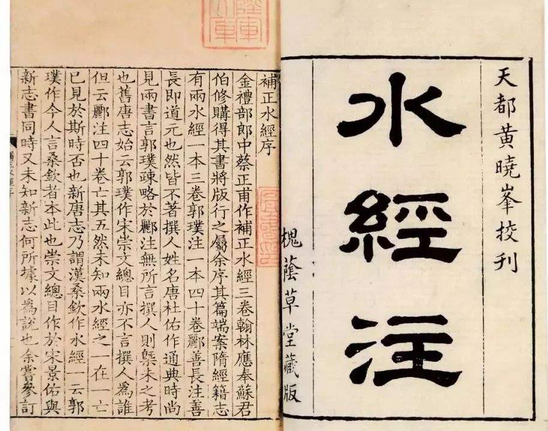 天都黄曉峯挍刊
水經注
槐蔭草堂藏版
補正水經序
金禮部郎中蔡正甫作補正水經三卷翰林應奉蘇君
伯修購得其書將版行之屬余序其篇端案隋經籍志
有兩水經一本三卷郭璞注一本四十卷酈善長注善
長即道元也然皆不著撰人姓名唐杜佑作通典時尚
見兩書言郭璞疎略於酈注無所言撰人則槩未之考
也舊唐志始云郭璞作宋崇文總目亦不言撰人爲誰
但云酈注四十卷亡其五然未知兩水經之一在一亡
已見於斯時否也新唐志乃謂漢桑欽作水經一云郭
璞作今人言桑欽者本此也崇文總目作於宋景祐與
新志書同時又未知新志何所據以爲說也余嘗參訂